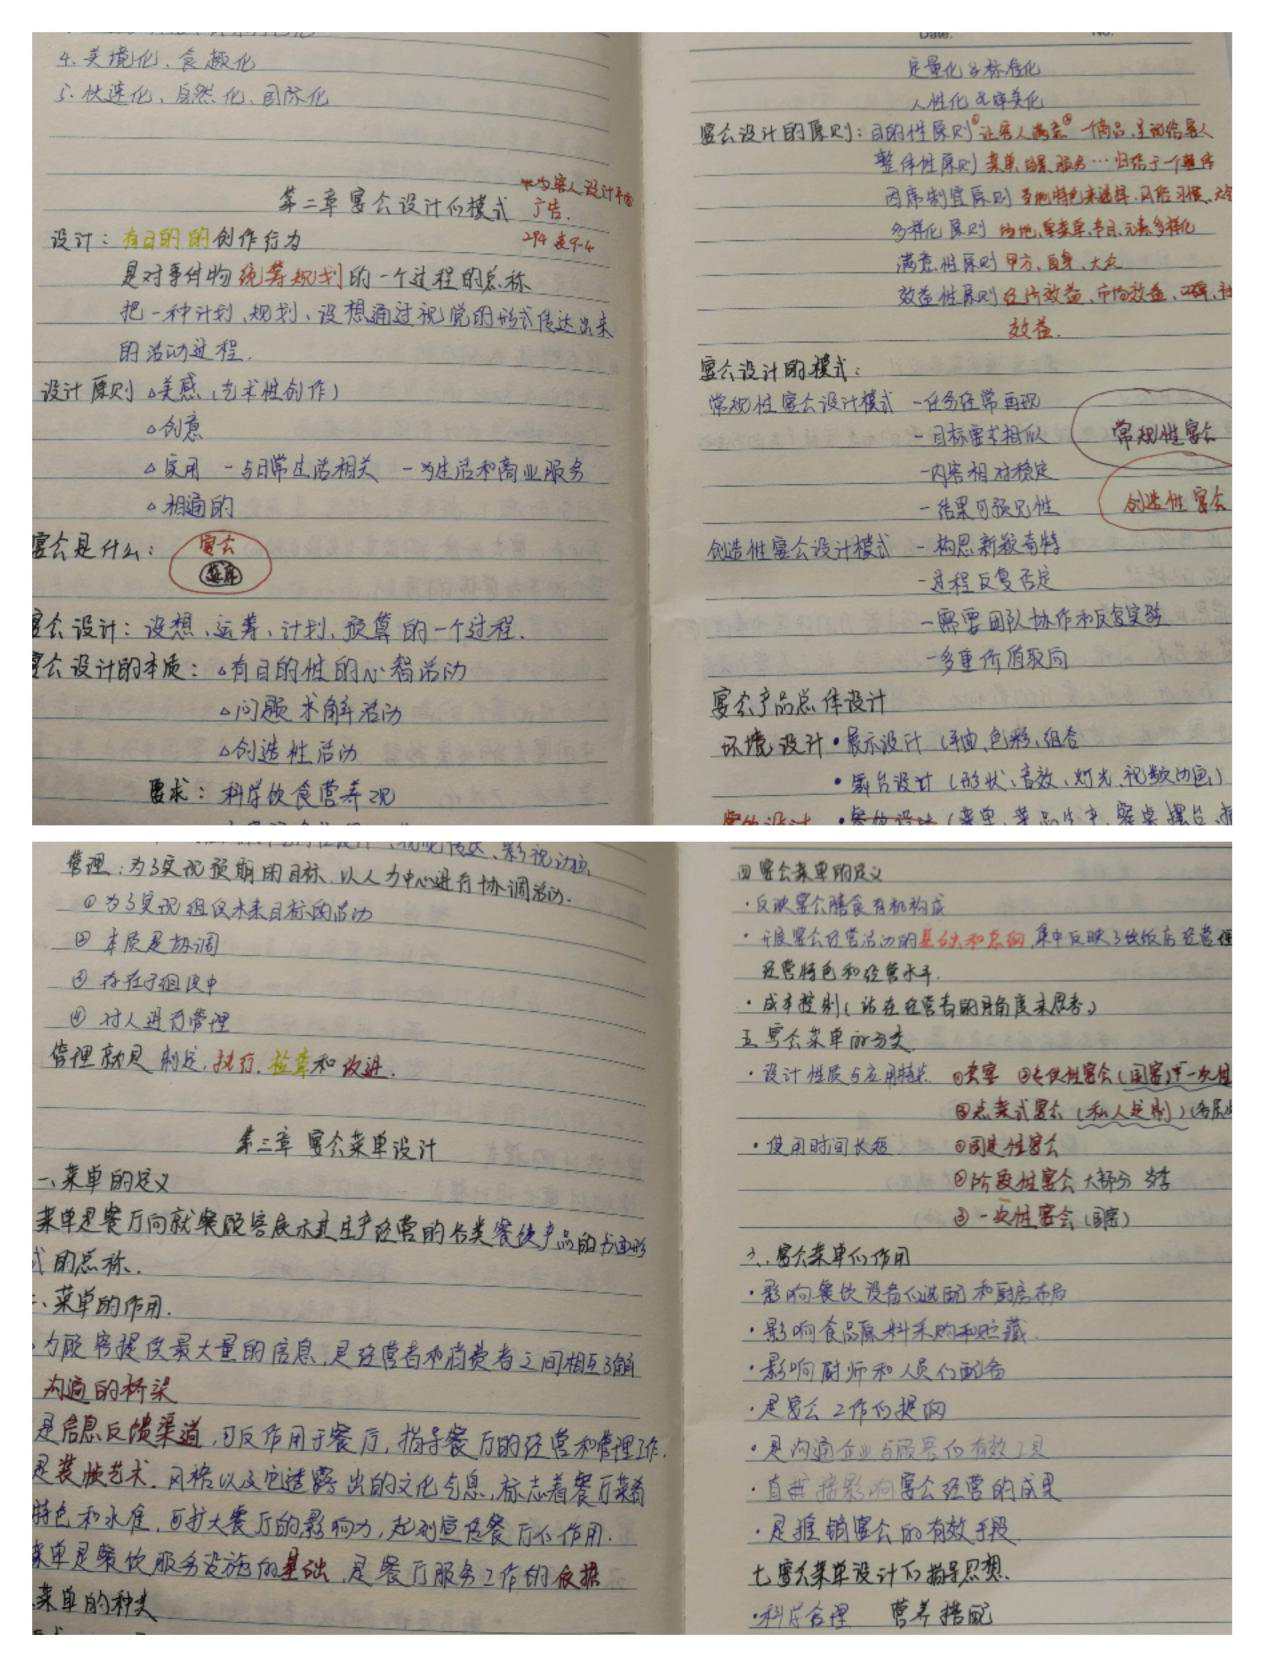 4. 美境化、食趣化
5. 快速化、自然化、国际化
第二章 宴会设计的模式
为客人设计
广告.
294 表9-4
设计：有目的的创作行为
是对事件物统筹规划的一个过程的总称
把一种计划、规划、设想通过视觉的形式传达出来
的活动过程.
设计原则 △美感（艺术性创作）
△创意
△实用 －与日常生活相关 －为生活和商业服务
△相通的
宴会是什么：
宴会
菜单
宴会设计：设想、运筹、计划、预算的一个过程.
宴会设计的本质：△有目的性的心智活动
△问题求解活动
△创造性活动
要求：科学饮食营养观
Date. No.
定量化 标准化
人性化 审美化
宴会设计的原则：目的性原则 ①让客人满意 ②一个商品,
整体性原则 菜单、场景、服务…归结于一个整体
因席制宜原则 当地特色来选择、风俗习惯、
多样化原则 场地、宴菜单、节目、元素多样化
满意性原则 甲方、自身、大众
效益性原则 经济效益、市场效益、口碑、社
效益.
宴会设计的模式：
常规性宴会设计模式 －任务经常再现
－目标要求相似
常规性宴会
－内容相对稳定
－结果可预见性
创造性宴会
创造性宴会设计模式 －构思新颖奇特
－过程反复否定
－需要团队协作和反复实验
－多重价值取向
宴会产品总体设计
环境设计 •展示设计（平面、色彩、组合
•舞台设计（形状、音效、灯光、视频动画）
餐饮设计 •餐饮设计（菜单、菜品生产、餐桌摆台、
管理：为了实现预期的目标，以人为中心进行协调活动.
①为了实现组织未来目标的活动
②本质是协调
③存在于组织中
④对人进行管理
管理就是 制定、执行、检查和改进.
第三章 宴会菜单设计
一、菜单的定义
菜单是餐厅向就餐顾客展示其生产经营的各类餐饮产品的书面形
式的总称.
二、菜单的作用.
·为顾客提供最大量的信息，是经营者和消费者之间相互了解
沟通的桥梁
是信息反馈渠道，可反作用于餐厅，指导餐厅的经营和管理工作.
是装帧艺术．风格以及它透露出的文化气息，标志着餐厅菜肴
特色和水准，可扩大餐厅的影响力，起到宣传餐厅的作用.
菜单是餐饮服务设施的基础，是餐厅服务工作的依据
菜单的种类
四 宴会菜单的定义
·反映宴会膳食有机构成
·开展宴会经营活动的基础和总纲，集中反映了饭店经营理
经营特色和经营水平.
·成本控制（站在经营者的角度来思考）
五 宴会菜单的分类
·设计性质与应用特点 ①套宴 ②专供性宴会（国宴）一次性
③点菜式宴会（私人定制）
·使用时间长短 ①固定性宴会
②阶段性宴会 大部分 当季
③一次性宴会（国宴）
六、宴会菜单的作用
·影响餐饮设备的选配和厨房布局
·影响食品原料采购和贮藏
·影响厨师和人员的配备
·是宴会工作的提纲
·是沟通企业与顾客的有效工具
·直接影响宴会经营的成果
·是推销宴会的有效手段
七 宴会菜单设计的指导思想.
·科学合理 营养搭配